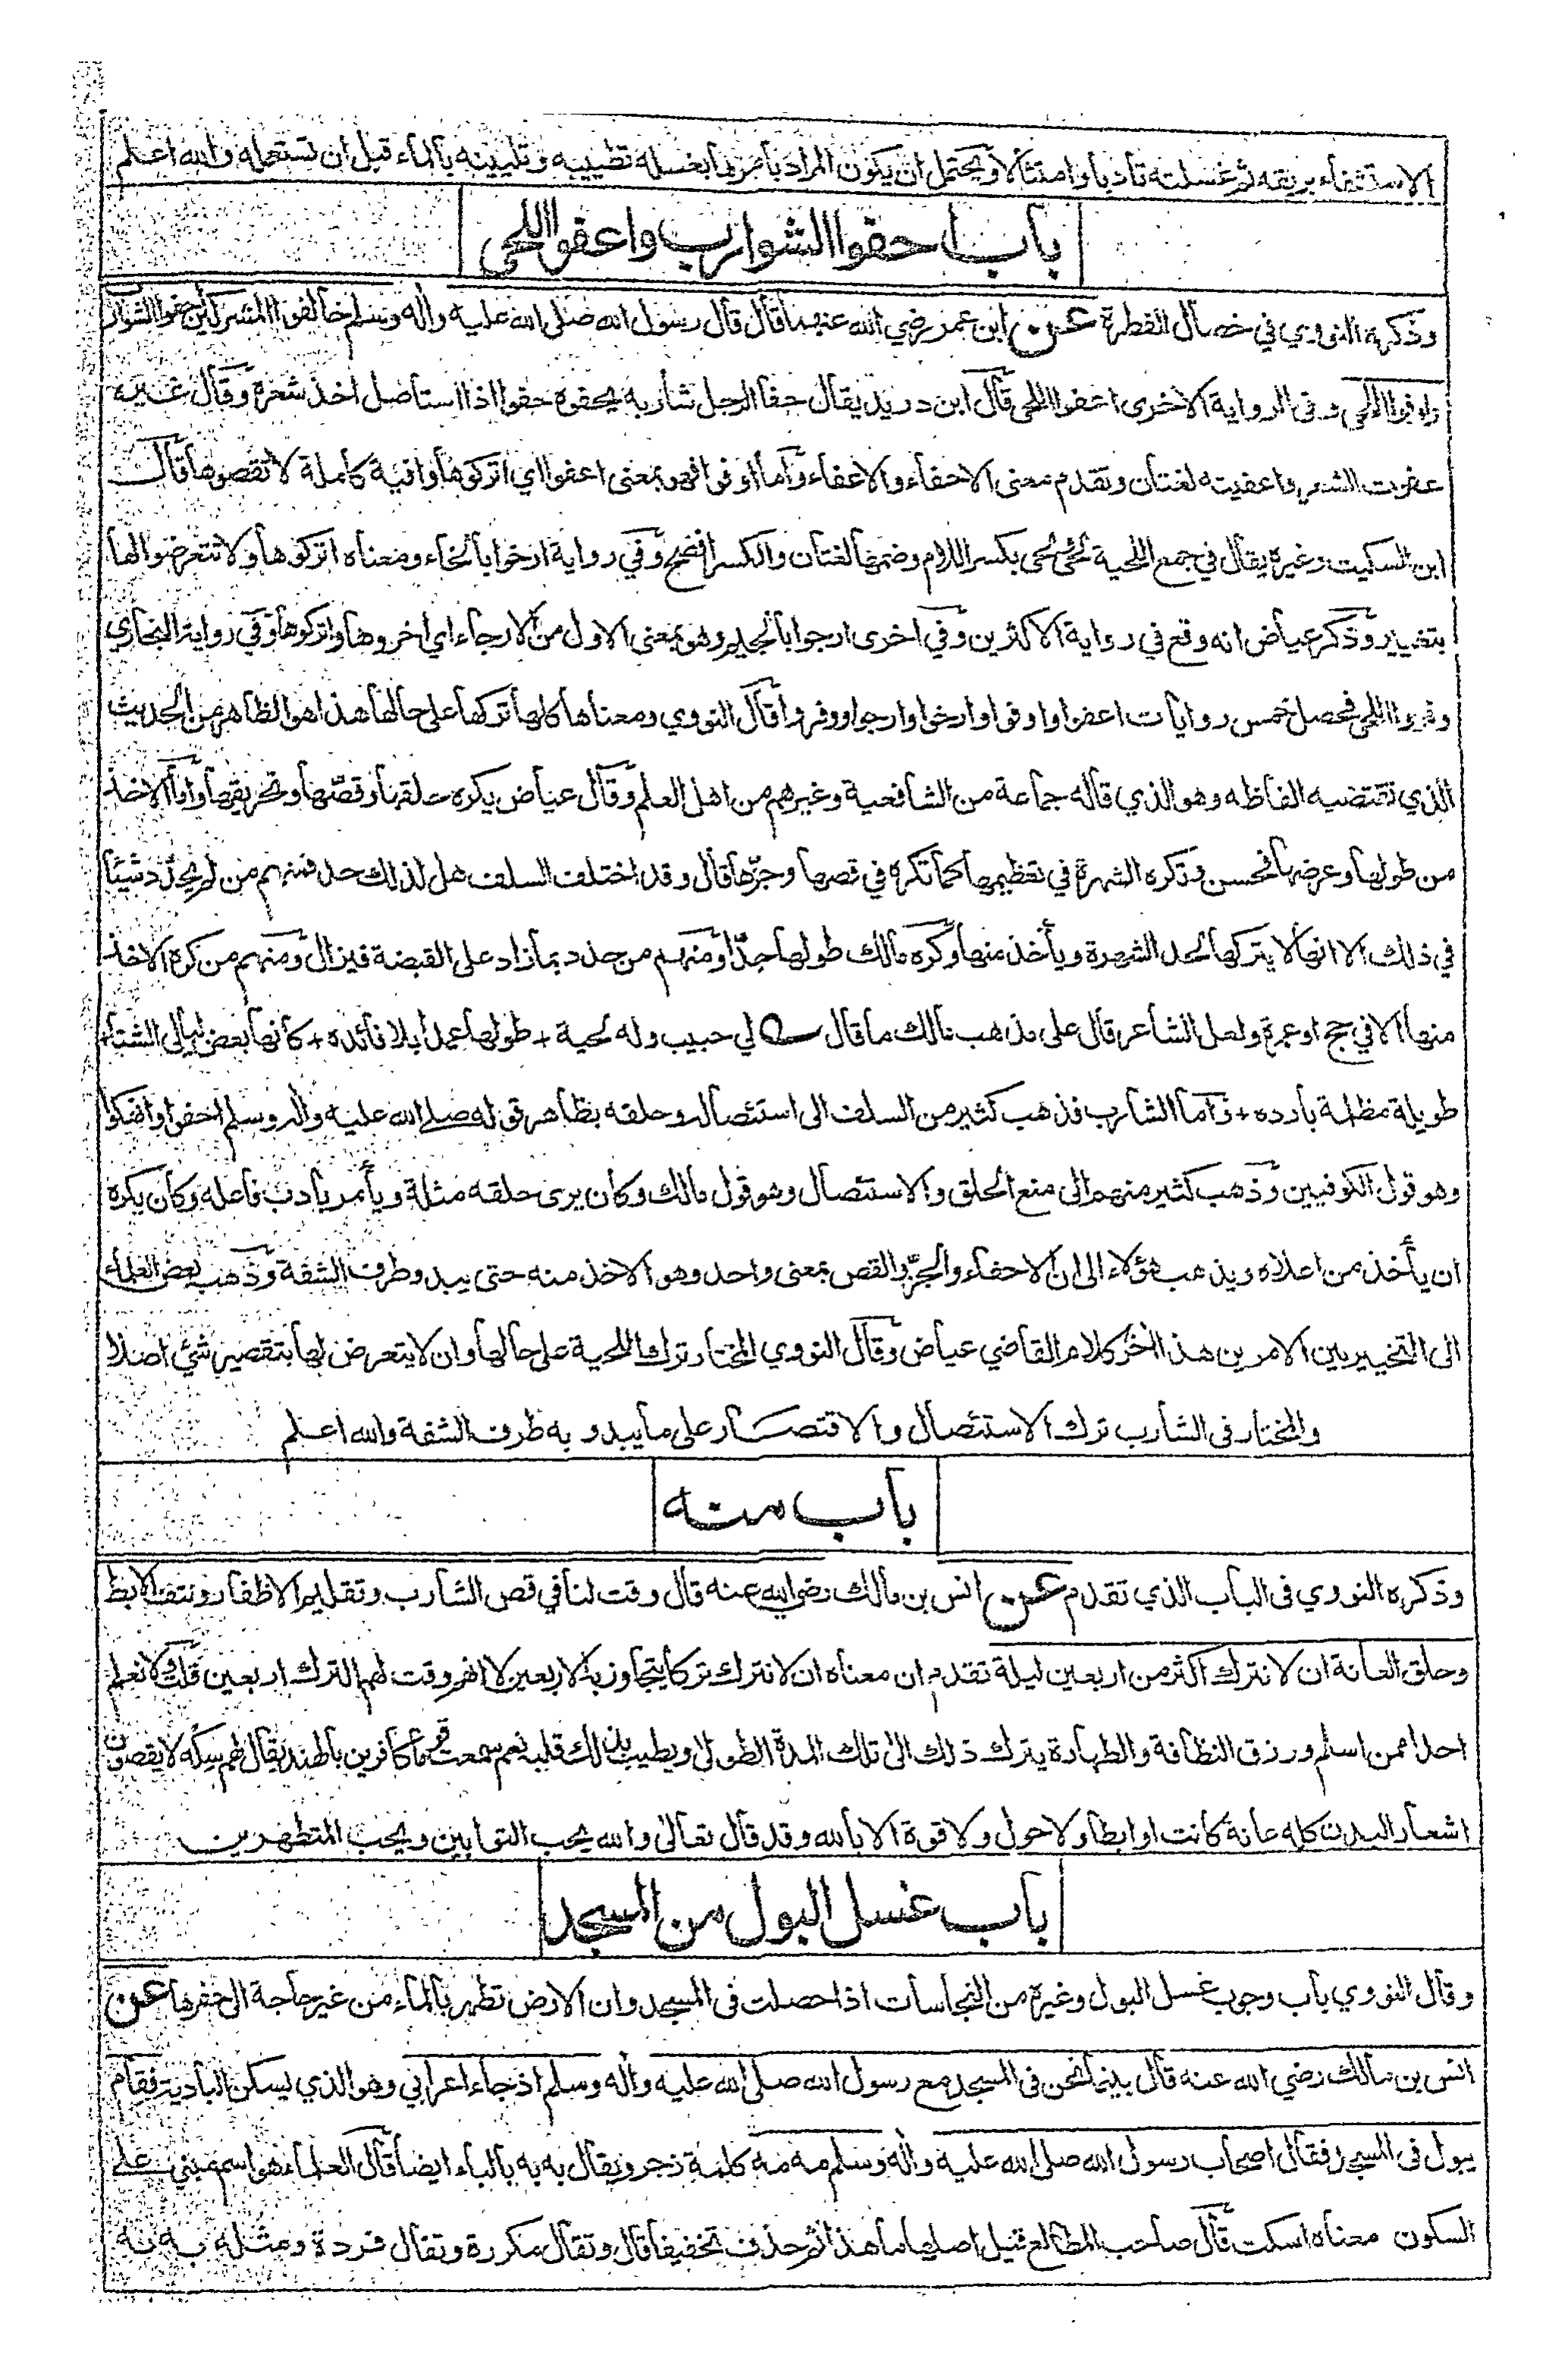 الاستشفاء بريقه ثم غسلته تأدبا وامتثالا ويحتمل ان يكون المراد بأمرنا بغسله تطييبه وتليينه بالماء قبل ان تستعمله والله اعلم
باب احفوا الشوارب واعفوا اللحى
وذكره النووي في خصال الفطرة عن ابن عمر رضي الله عنهما قال قال رسول الله صلى الله عليه واله وسلم خالفوا المشركين احفوا الشوارب
واوفوا اللحى وفى الرواية الاخرى اعفوا اللحى قال ابن دريد يقال حفا الرجل شاربه يحفوه حفوا اذا استأصل اخذ شعره وقال غيره
عفوت الشعر واعفيته لغتان وتقدم معنى الاحفاء والاعفاء وأما اوفوا فهو بمعنى اعفوا اي اتركوها وافية كاملة لا تقصوها قال
ابن السكيت وغيره يقال في جمع اللحية لحى ولحى بكسر اللام وضمها لغتان والكسر افصح وفي رواية ارخوا بالخاء ومعناه اتركوها ولا تتعرضوا لها
بتغيير وذكر عياض انه وقع في رواية الاكثرين وفي اخرى ارجوا بالجيم وهو بمعنى الاول من الارجاء اي اخروها واتركوها وفي رواية البخاري
وفروا اللحى فحصل خمس روايات اعفوا واوفوا وارخوا وارجوا ووفروا قال النووي ومعناها كلها تركها على حالها هذا هو الظاهر من الحديث
الذي تقتضيه الفاظه وهو الذي قاله جماعة من الشافعية وغيرهم من اهل العلم وقال عياض يكره حلقها وقصّها وتحريقها وأما الاخذ
من طولها وعرضها فحسن وتكره الشهرة في تعظيمها كما تكره في قصها وجزّها قال وقد اختلف السلف هل لذلك حد فمنهم من لم يحدّد شيئا
في ذلك الا انها لا يتركها لحد الشهرة ويأخذ منها وكره مالك طولها جدّا ومنهم من حدد بما زاد على القبضة فيزال ومنهم من كره الاخذ
منها الا في حج او عمرة ولعل الشاعر قال على مذهب مالك ما قال لي حبيب وله لحية + طولها عمدا بلا فائده + كأنها بعض ليالي الشتا +
طويلة مظلمة بارده + وأما الشارب فذهب كثير من السلف الى استئصاله وحلقه بظاهر قوله صلى الله عليه واله وسلم احفوا وانهكوا
وهو قول الكوفيين وذهب كثير منهم الى منع الحلق والاستئصال وهو قول مالك وكان يرى حلقه مثلة ويأمر بأدب فاعله وكان يكره
ان يأخذ من اعلاه ويذهب هؤلاء الى ان الاحفاء والجزّ والقص بمعنى واحد وهو الاخذ منه حتى يبدو طرف الشفة وذهب بعض العلماء
الى التخيير بين الامرين هذا اٰخر كلام القاضي عياض وقال النووي المختار ترك اللحية على حالها وان لا يتعرض لها بتقصير شئ اصلا
والمختار فى الشارب ترك الاستئصال والاقتصار على ما يبدو به طرف الشفة والله اعلم
باب منه
وذكره النووي فى الباب الذي تقدم عن انس بن مالك رضي الله عنه قال وقت لنا في قص الشارب وتقليم الاظفار ونتف الابط
وحلق العانة ان لا نترك اكثر من اربعين ليلة تقدم ان معناه ان لا نترك تركا يتجاوز به الاربعين لا انهم وقت لهم الترك اربعين قلت ولا نعلم
احدا ممن اسلم ورزق النظافة والطهارة يترك ذلك الى تلك المدة الطولى ويطيب بذلك قلبه نعم سمعت قوما كافرين بالهند يقال لهم سِكْه لا يقصون
اشعار البدن كله عانة كانت او ابطا ولا حول ولا قوة الا بالله وقد قال تعالى والله يحب التوابين ويحب المتطهرين
باب غسل البول من المسجد
وقال النووي باب وجوب غسل البول وغيره من النجاسات اذا حصلت فى المسجد وان الارض تطهر بالماء من غير حاجة الى حفرها عن
انس بن مالك رضي الله عنه قال بينما نحن فى المسجد مع رسول الله صلى الله عليه واٰله وسلم اذ جاء اعرابي وهو الذي يسكن البادية فقام
يبول فى المسجد فقال اصحاب رسول الله صلى الله عليه واٰله وسلم مه مه كلمة زجر ويقال به به بالباء ايضا قال العلماء هو اسم مبني على
السكون معناه اسكت قال صاحب المطالع قيل اصلها ما هذا ثم حذف تخفيفا قال وتقال مكررة وتقال فردة ومثله به به